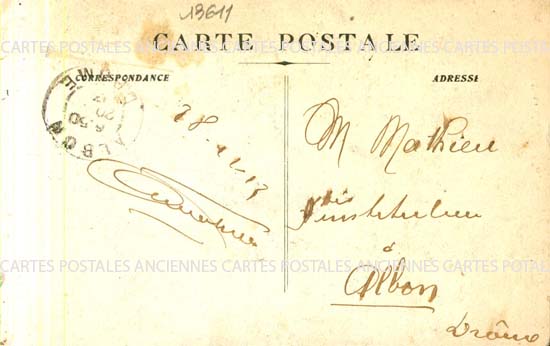 13611
CARTE POSTALE
CORRESPONDANCE
ADRESSE
ALBON
6-50
28-11-13
M Mathieu
Instituteur
à
Albon
Drôme
CARTES POSTALES ANCIENNES CARTES POSTALES ANCIENNES CARTES POSTALES
CARTES POSTALES ANCIENNES CARTES POSTALES ANCIENNES CARTES POSTALES